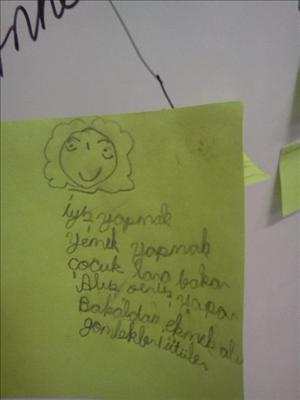 Anne
iş yapmak
yemek yapmak
çocuk lara bakar
Alış veriş yapar
Bakaldan ekmek alır
gömlekleri ütüler